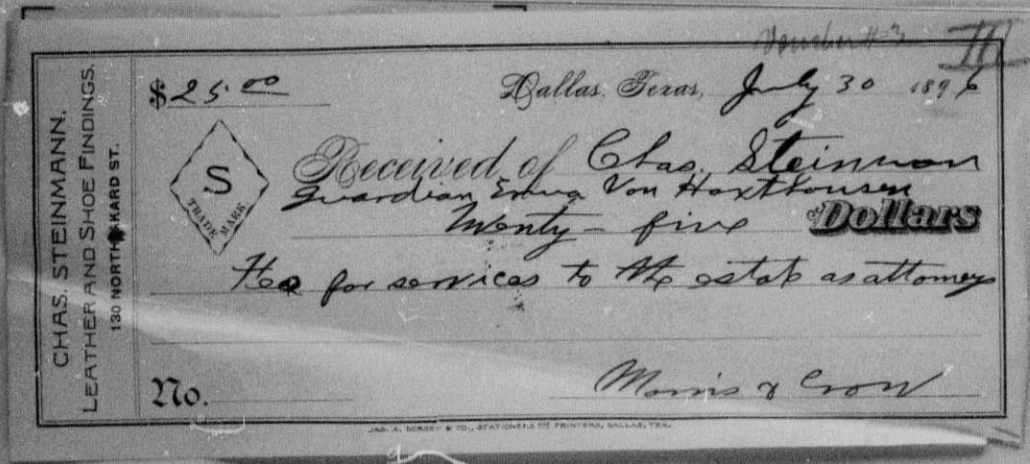 Voucher #3 III
CHAS. STEINMANN.
LEATHER AND SHOE FINDINGS.
130 NORTH AKARD ST.
$25.00 Dallas, Texas, July 30 1896
S
TRADE MARK
Received of Chas. Steinman
guardian Emma Von Haxthausen
Twenty - five Dollars
Fee for services to the estate as attorneys
No. Morris & Crow
JAS. A. DORSEY & CO., STATIONERS & PRINTERS, DALLAS, TEX.